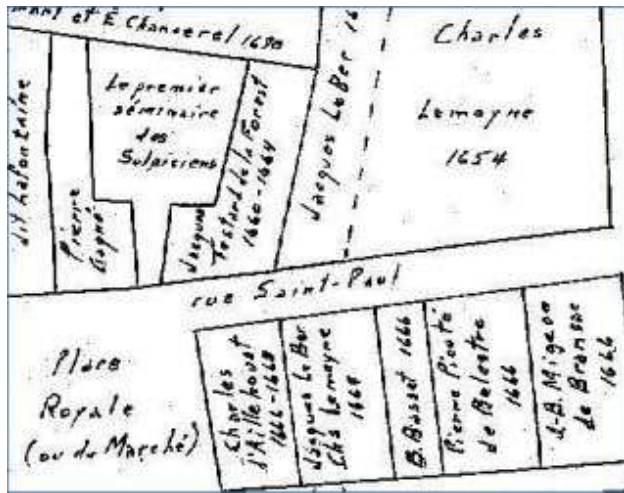 mont et E Chanverel 1690
dit Lafontaine
Pierre
Gagné
Le premier
séminaire
des
Sulpiciens
Jacques
Testard de la Forest
1660-1664
Jacques LeBer 16
Charles
Lemoyne
1654
rue Saint-Paul
Place
Royale
(ou du Marché)
Charles
d'Aillebout
1666-1668
Jacques LeBer
Chs Lemoyne
B. Basset 1666
Pierre Picoté
de Belestre
1666
J-B. Migeon
de Bransac
1666